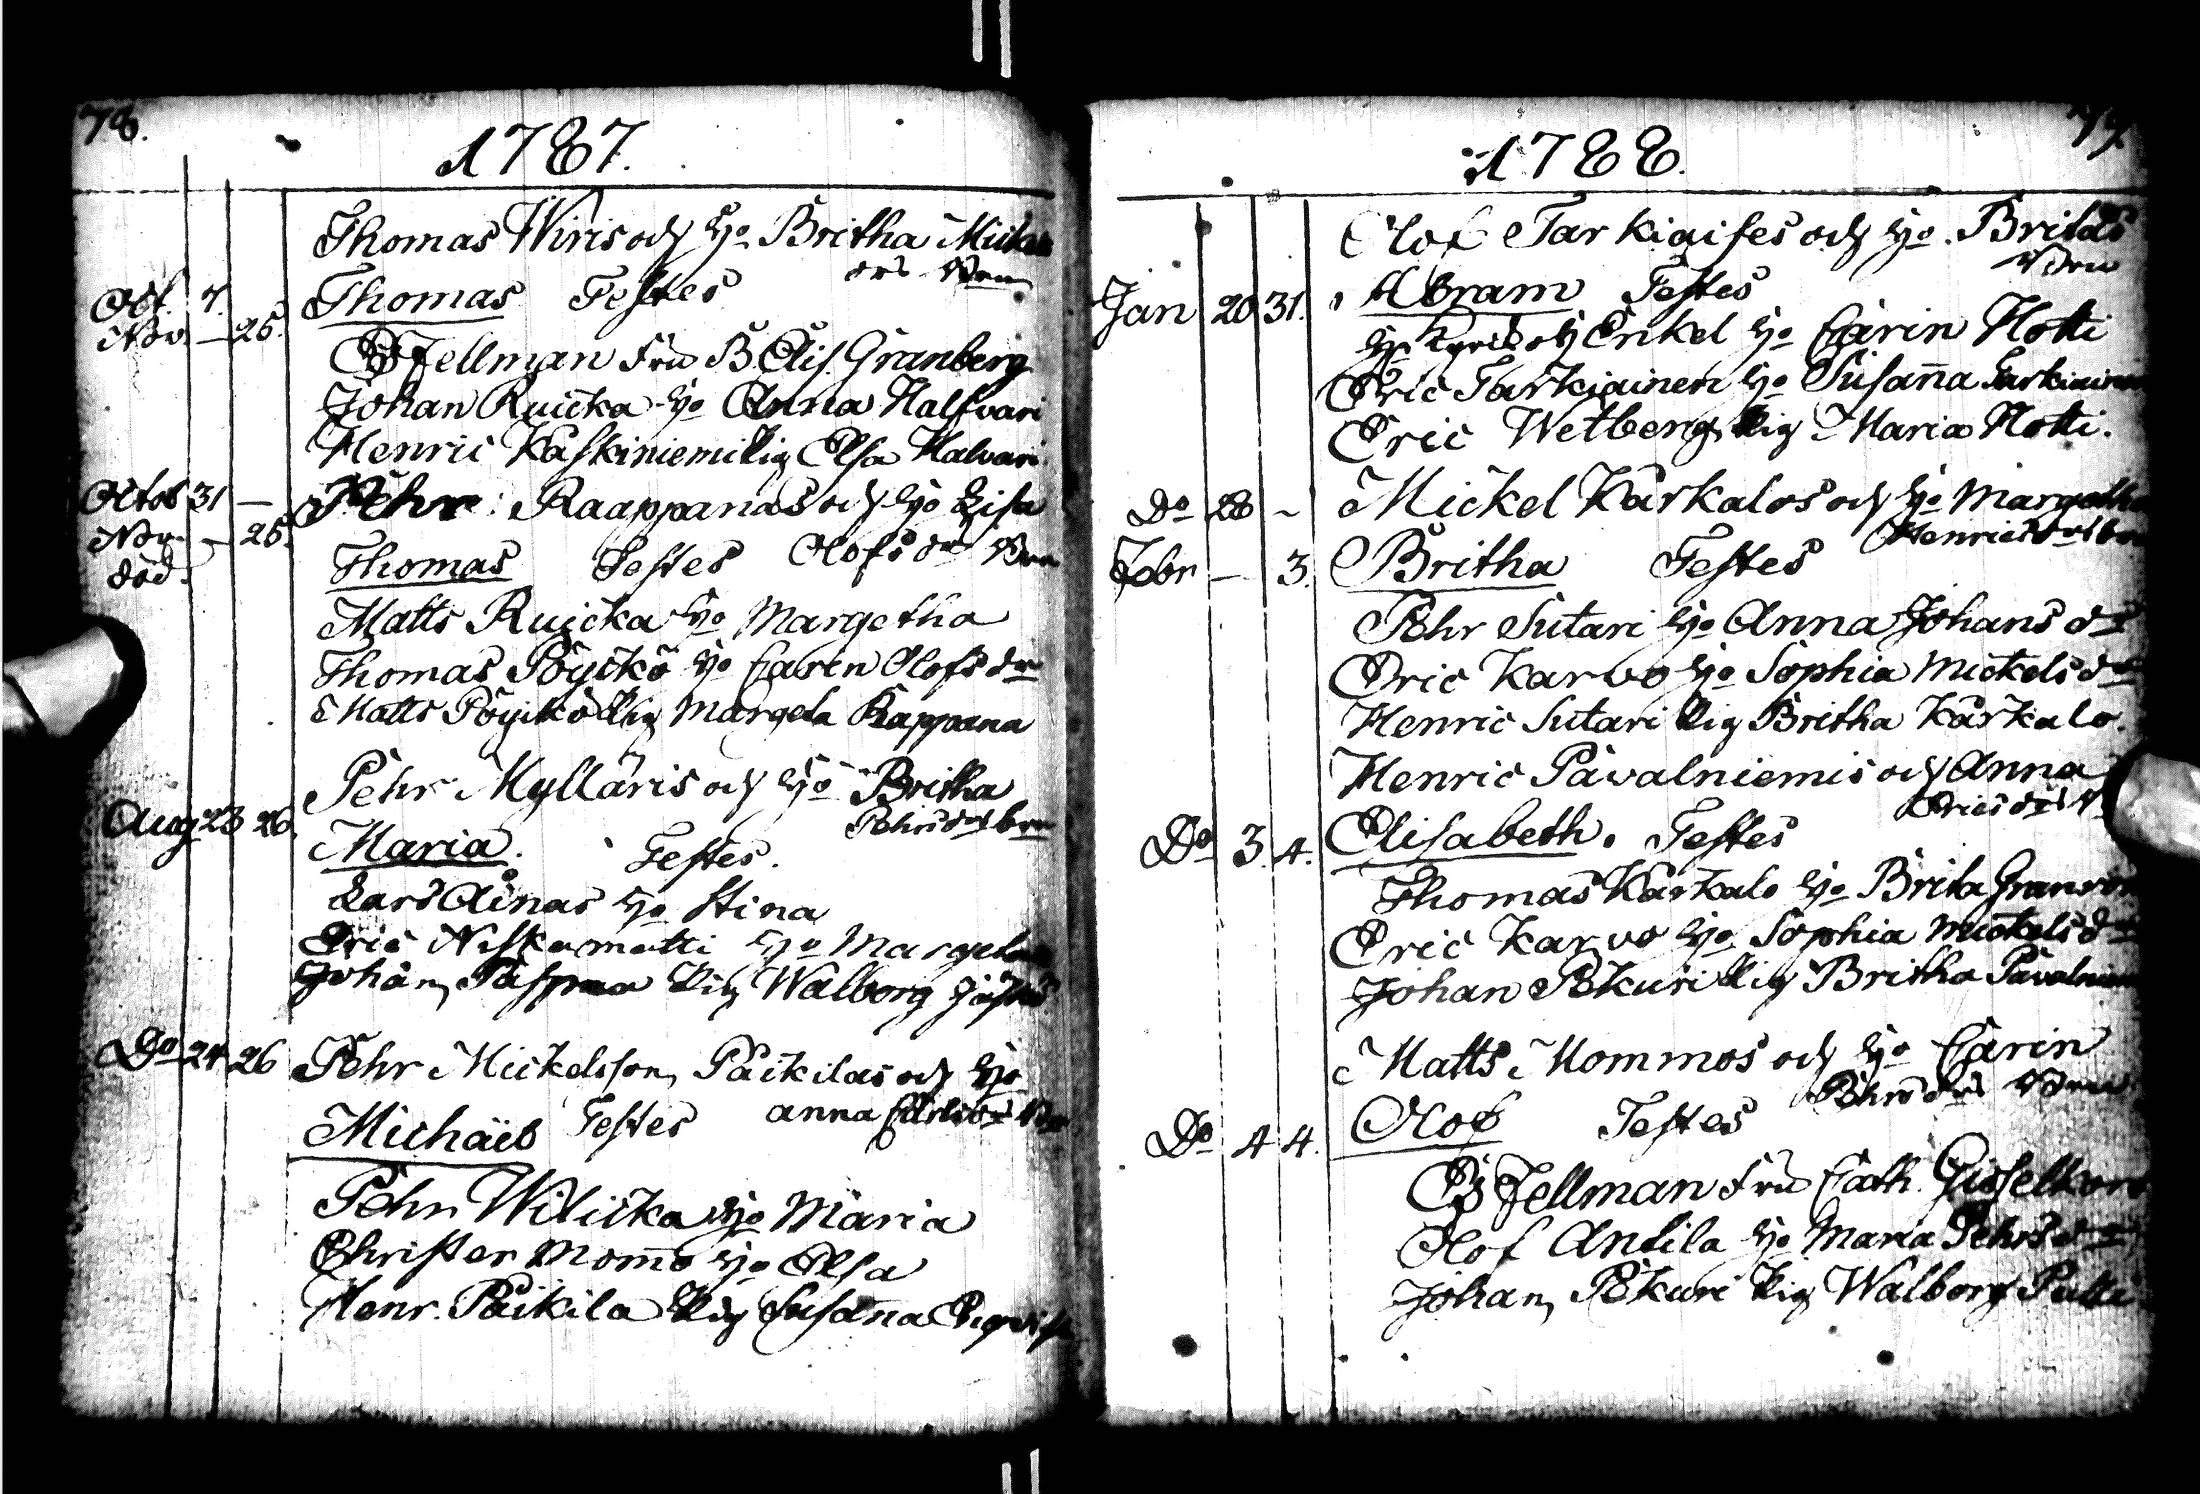 78.
1787.
Thomas Wiris och Hjo Britha Mickels
drs Brn
Oct. 7.
Nov. — 25.
Thomas Testes
EJ Fellman Fru B. Elis. Granberg
Johan Ruicka Hjo Anna Halfvari
Henric Kaskiniemi Pig Elsa Halvari
Octob 31 — Pehr Raappanas och Hjo Lisa
Nov. — 25.
död.
Thomas Testes Olofs dr Brn
Matts Ruicka Hjo Margetha
Thomas Pöyckö Hjo Carin Olofs dr
Matts Pöyckö Pig Margeta Rappana
Pehr Mylläris och Hjo Britha
Aug 23 26. Pehrs drs brn
Maria. Testes.
Lars Ainas Hjo Stina
Eric Niskamatti Hjo Margeta
Johan Paspaa Pig Walborg
Do 24 26 Pehr Mickelsson Päikilas och Hjo
Michaël Testes anna
Pehr Wilicka Hjo Maria
Christer Mom̄o Hjo Elsa
Henr. Päikila Pig Susan̄a
79.
1788.
Olof Tarkiaises och Hjo. Britas
Brn
Jan 20 31. Abram Testes
Enkel Hjo Carin Hotti
Eric Tarkiainen Hjo Susan̄a Tarkiainen
Eric Wetberg Pig Maria Hotti.
Do 28 ~ Mickel Karkalos och Hjo Margetha
Henrics drs brn
Febr — 3. Britha Testes
Pehr Sutari Hjo Anna Johans dr
Eric Karvo Hjo Sophia Mickels dr
Henric Sutari Pig Britha Karkalo.
Henric Pavalniemis och Anna
Erics drs
Do 3. 4. Elisabeth. Testes
Thomas Karkalo Hjo Brita Granroth
Eric Karvo Hjo Sophia Mickels dr
Johan Pekuri Pig Britha Pavalniemi
Matts Mommos och Hjo Carin
Pehrs drs Brn
Do 4 4. Olof Testes
EJ Fellman Fru Cath. Gisselkors
Olof Antila Hjo Maria Pehrs dr
Johan Pekuri Pig Walborg